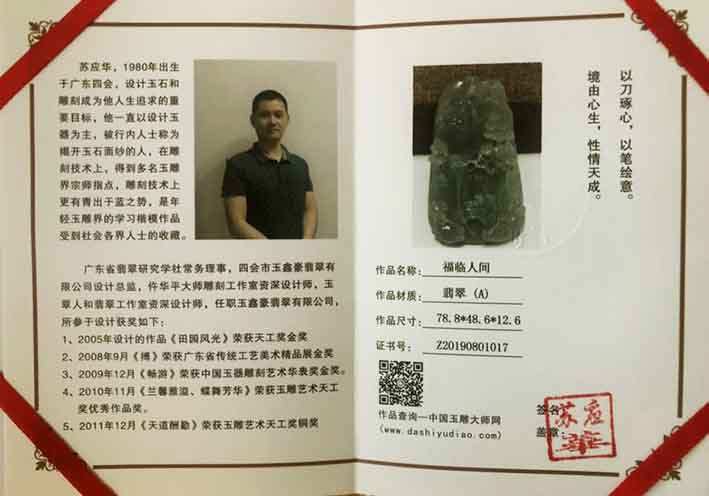 苏应华，1980年出生
于广东四会，设计玉石和
雕刻成为他人生追求的重
要目标，他一直以设计玉
器为主，被行内人士称为
揭开玉石面纱的人，在雕
刻技术上，得到多名玉雕
界宗师指点，雕刻技术上
更有青出于蓝之势，是年
轻玉雕界的学习楷模作品
受到社会各界人士的收藏。
广东省翡翠研究学社常务理事，四会市玉鑫豪翡翠有
限公司设计总监，仵华平大师雕刻工作室资深设计师，玉
翠人和翡翠工作室资深设计师，任职玉鑫豪翡翠有限公司，
所参于设计获奖如下：
1、2005年设计的作品《田园风光》荣获天工奖金奖
2、2008年9月《搏》荣获广东省传统工艺美术精品展金奖
3、2009年12月《畅游》荣获中国玉器雕刻艺术华表奖金奖。
4、2010年11月《兰馨雅溢、蝶舞芳华》荣获玉雕艺术天工
奖优秀作品奖。
5、2011年12月《天道酬勤》荣获玉雕艺术天工奖铜奖
以刀琢心，以笔绘意。
境由心生，性情天成。
作品名称： 福临人间
作品材质： 翡翠（A）
作品尺寸： 78.8*48.6*12.6
证书号： Z20190801017
作品查询—中国玉雕大师网
(www.dashiyudiao.com)
签名：
盖章：
苏应
华